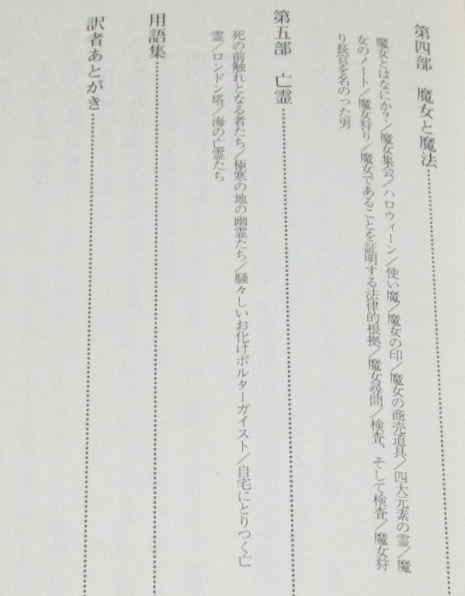 第四部　魔女と魔法
魔女とはなにか？／魔女集会／ハロウィーン／使い魔／魔女の印／魔女の商売道具／四大元素の霊／魔
女のノート／魔女狩り／魔女であることを証明する法律的根拠／魔女尋問／検査、そして検査／魔女狩
り長官を名のった男
第五部　亡霊
死の前触れとなる者たち／極寒の地の幽霊たち／騒々しいお化けポルターガイスト／自宅にとりつく亡
霊／ロンドン塔／海の亡霊たち
用語集
訳者あとがき